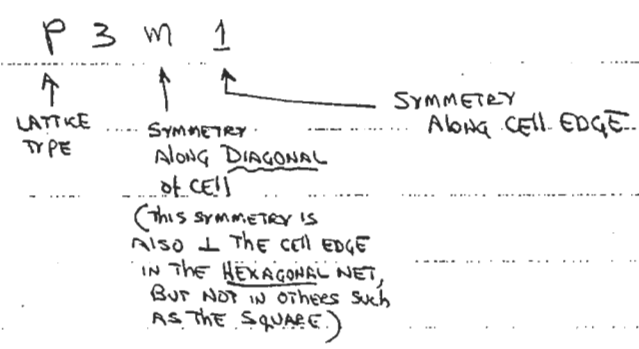 P 3 m 1
LATTICE
TYPE
SYMMETRY
Along DIAGONAL
of CELL
(This SYMMETRY IS
Also ⊥ The CELL EDGE
IN THE HEXAGONAL NET,
But NOT IN OTHERS Such
AS The SQUARE)
SYMMETRY
Along CELL EDGE